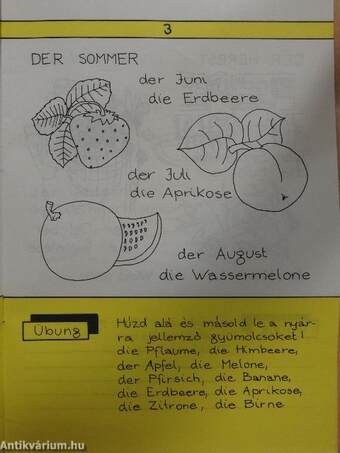 3
DER SOMMER
der Juni
die Erdbeere
der Juli
die Aprikose
der August
die Wassermelone
Übung
Húzd alá és másold le a nyár-
ra jellemző gyümölcsöket!
die Pflaume, die Himbeere,
der Apfel, die Melone,
der Pfirsich, die Banane,
die Erdbeere, die Aprikose,
die Zitrone, die Birne
Antikvárium.hu